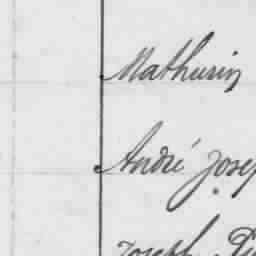 Mathurin
André Josep
Joseph